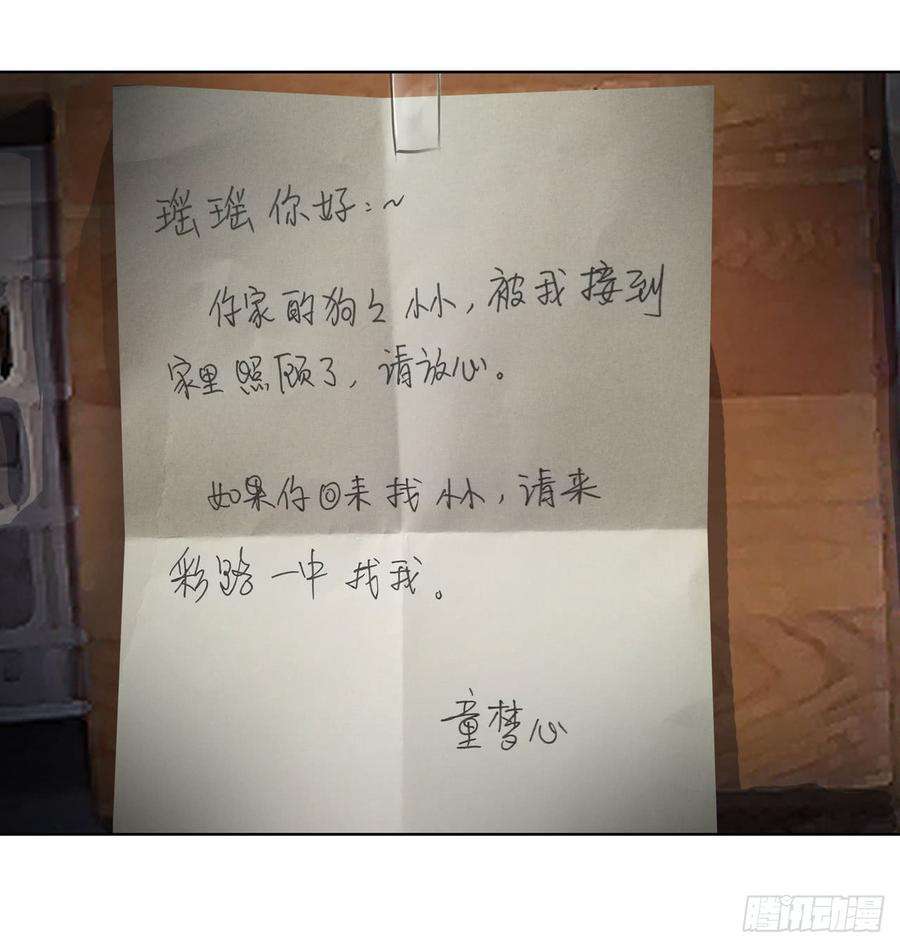 瑶瑶你好:~
你家的狗勾小小,被我接到
家里照顾了,请放心。
如果你回来找小小,请来
彩路一中找我。
童梦心
腾讯动漫